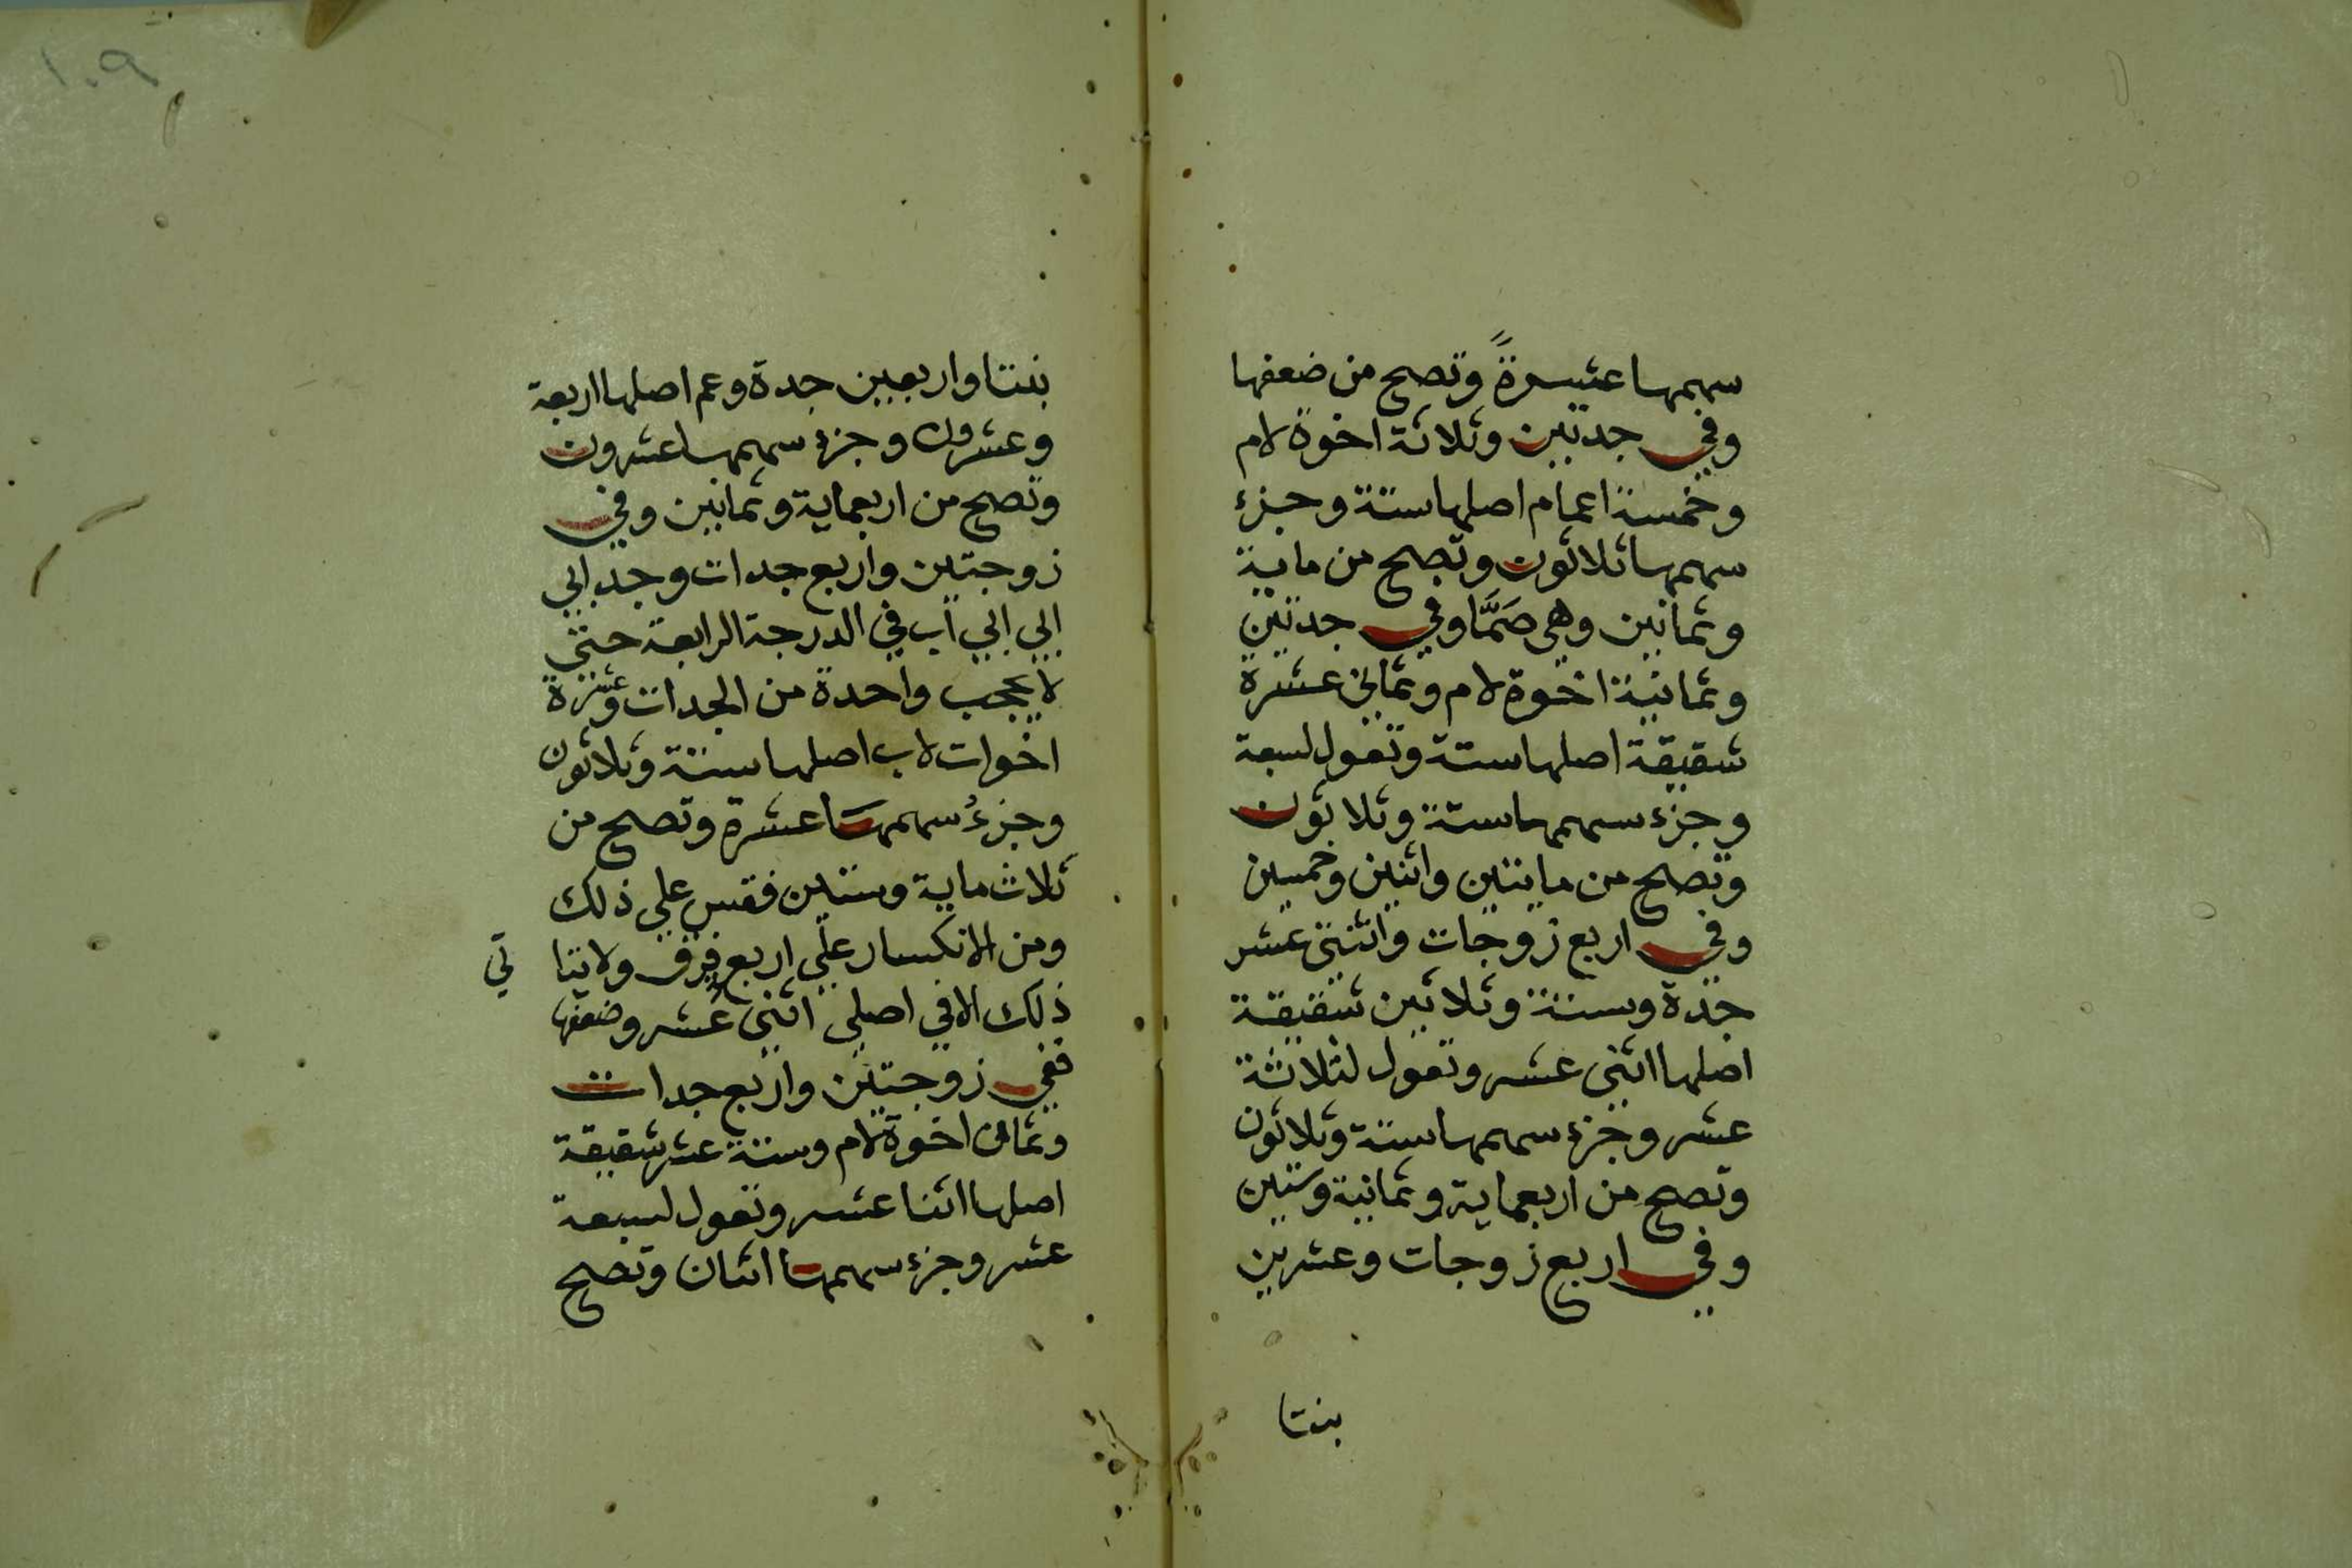 سهمها عشرةً وتصح من ضعفها
وفي جدتين وثلاثة اخوة لام
وخمسة اعمام اصلها ستة وجزء
سهمها ثلاثون وتصح من ماية
وثمانين وهي صَمَّا وفي جدتين
وثمانية اخوة لام وثماني عشرة
شقيقة اصلها ستة وتعول لسبعة
وجزء سهمها ستة وثلاثون
وتصح من مايتين واثنين وخمسين
وفي اربع زوجات واثنتي عشر
جدة وستة وثلاثين شقيقة
اصلها اثني عشر وتعول لثلاثة
عشر وجزء سهمها ستة وثلاثون
وتصح من اربعماية وثمانية وستين
وفي اربع زوجات وعشرين
بنتا
١٠٩
بنتا واربعين جدة وعم اصلها اربعة
وعشرون وجزء سهمها عشرون
وتصح من اربعماية وثمانين وفي
زوجتين واربع جدات وجد ابي
ابي ابي اب في الدرجة الرابعة حتي
لا يحجب واحدة من الجدات وعشرة
اخوات لاب اصلها ستة وثلاثون
وجزءُ سهمها عشرة وتصح من
ثلاث ماية وستين فقس علي ذلك
ومن الانكسار علي اربع فرق ولا يتا
تي
ذلك الا في اصلي اثني عشر وضعفها
ففي زوجتين واربع جدات
وثمان اخوة لام وستة عشر شقيقة
اصلها اثنا عشر وتعول لسبعة
عشر وجزء سهمها اثنان وتصح